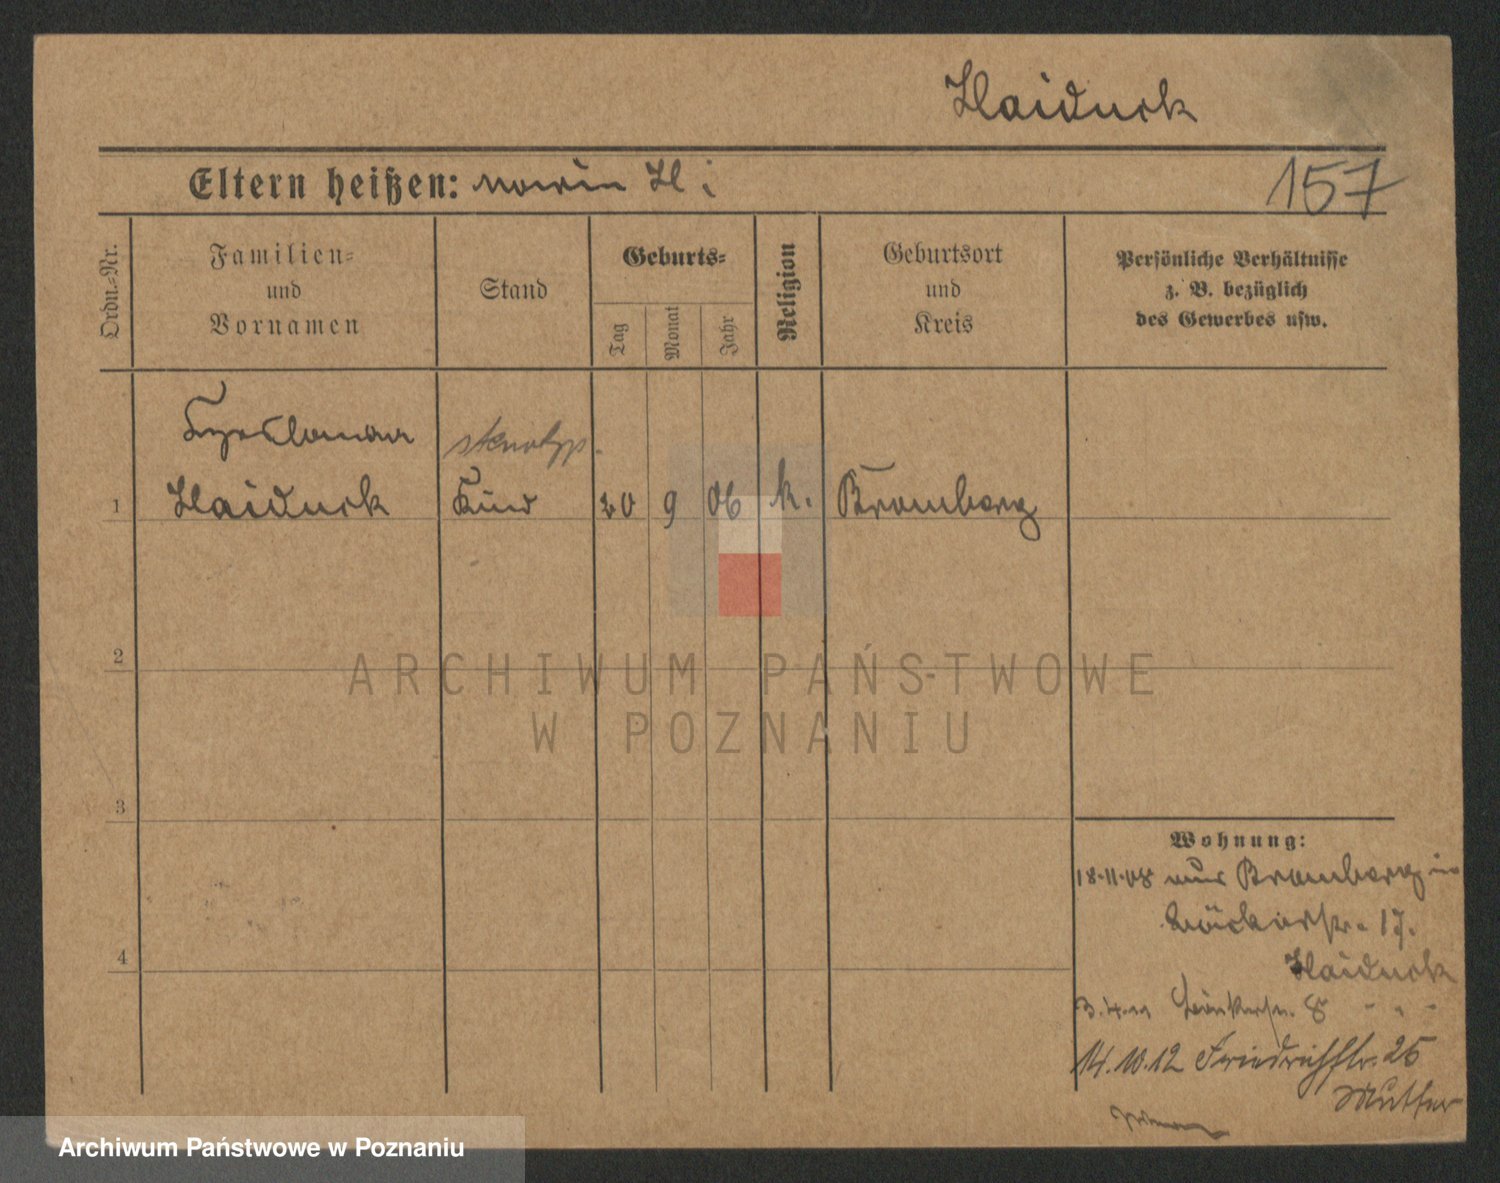 Haiduck
Eltern heißen: H.
157
Ordn.-Nr.
Familien=
und
Vornamen
Stand
Geburts=
Tag
Monat
Jahr
Religion
Geburtsort
und
Kreis
Persönliche Verhältnisse
z. B. bezüglich
des Gewerbes usw.
stenotyp.
1 Haiduck Kind 20 9 06 k. Bromberg
2
ARCHIWUM PAŃSTWOWE
W POZNANIU
3
4
Wohnung:
18.11.08 aus Bromberg in
Bäckerstr. 17.
Haiduck
3.4.11 Bäckerstr. 8 " " "
14.10.12 Friedrichstr. 25
Mutter
Archiwum Państwowe w Poznaniu